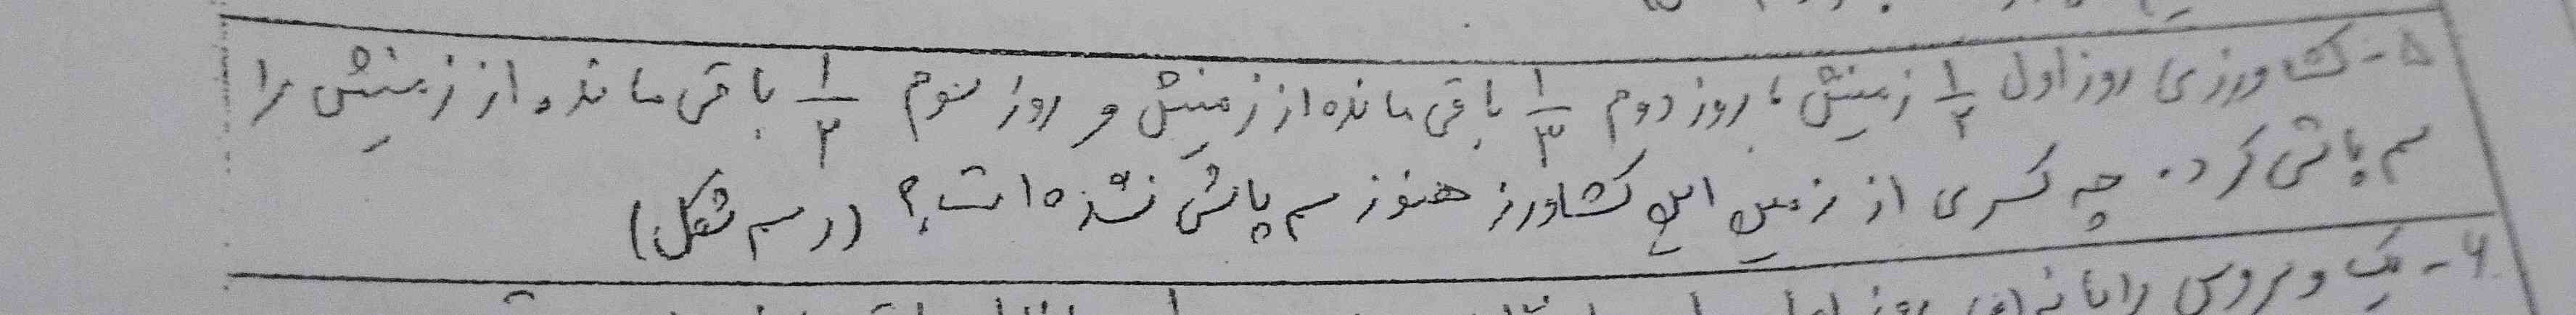 ۵- کشاورزی روز اول ۱/۲ زمینش، روز دوم ۱/۳ باقی مانده از زمینش و روز سوم ۱/۲ باقی مانده از زمینش را
سم پاشی کرد. چه کسری از زمین این کشاورز هنوز سم پاشی نشده است؟ (رسم شکل)
۶- یک ویروس رایانه‌ای روز اول